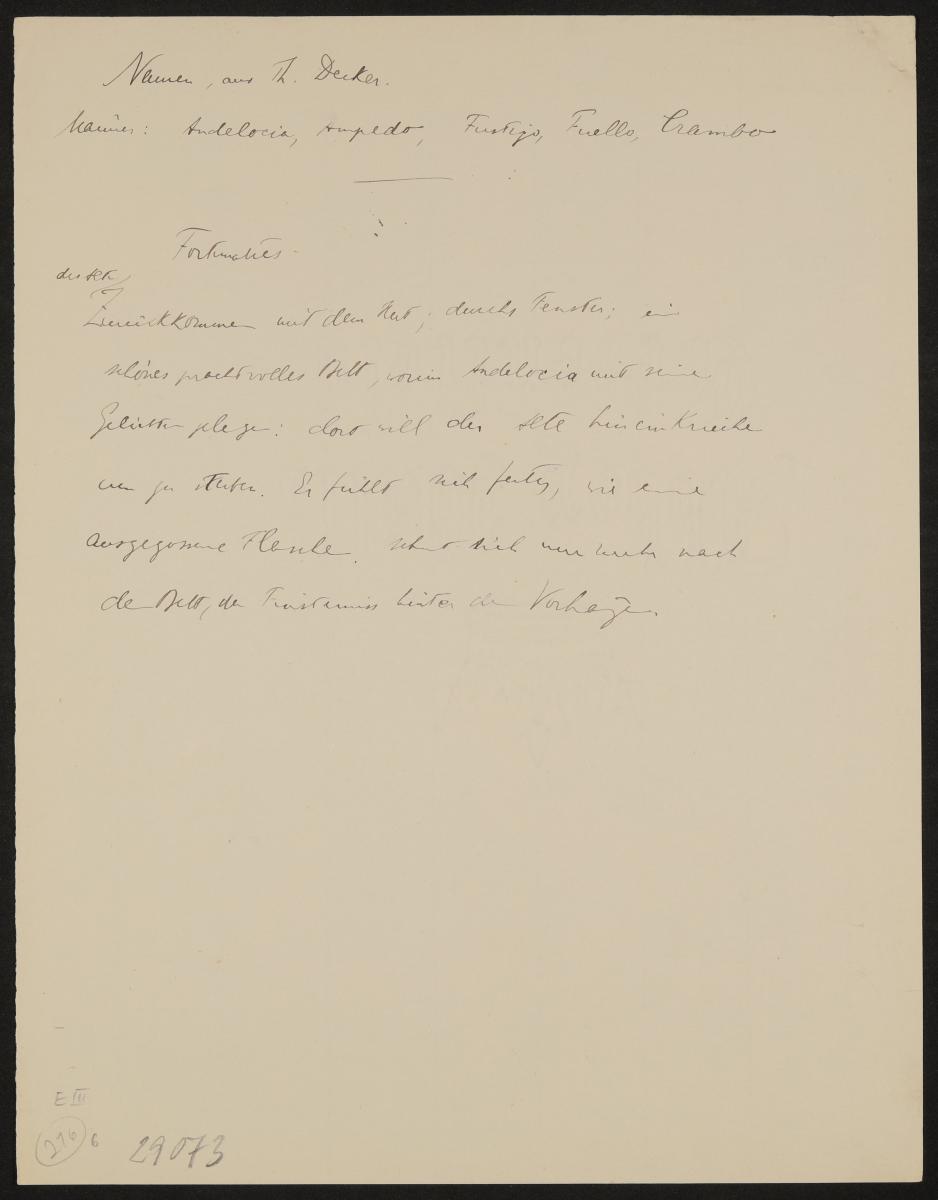 Namen, aus Th. Decker.
Männer: Andelocia, Ampedo, Fustigo, Fuello, Crambo
Fortunatus
der Alte
Zurückkommen mit dem Hut; durchs Fenster; ein
schönes prachtvolles Bett, worin Andelocia mit seine
Geliebten pflegen: dort will der Alte hineinkriechen
um zu sterben. Er fühlt sich fertig, wie eine
ausgegossene Flasche, sehnt sich nur mehr nach
dem Bett, der Finsterniss hinter den Vorhängen.
E III
216 6
29073